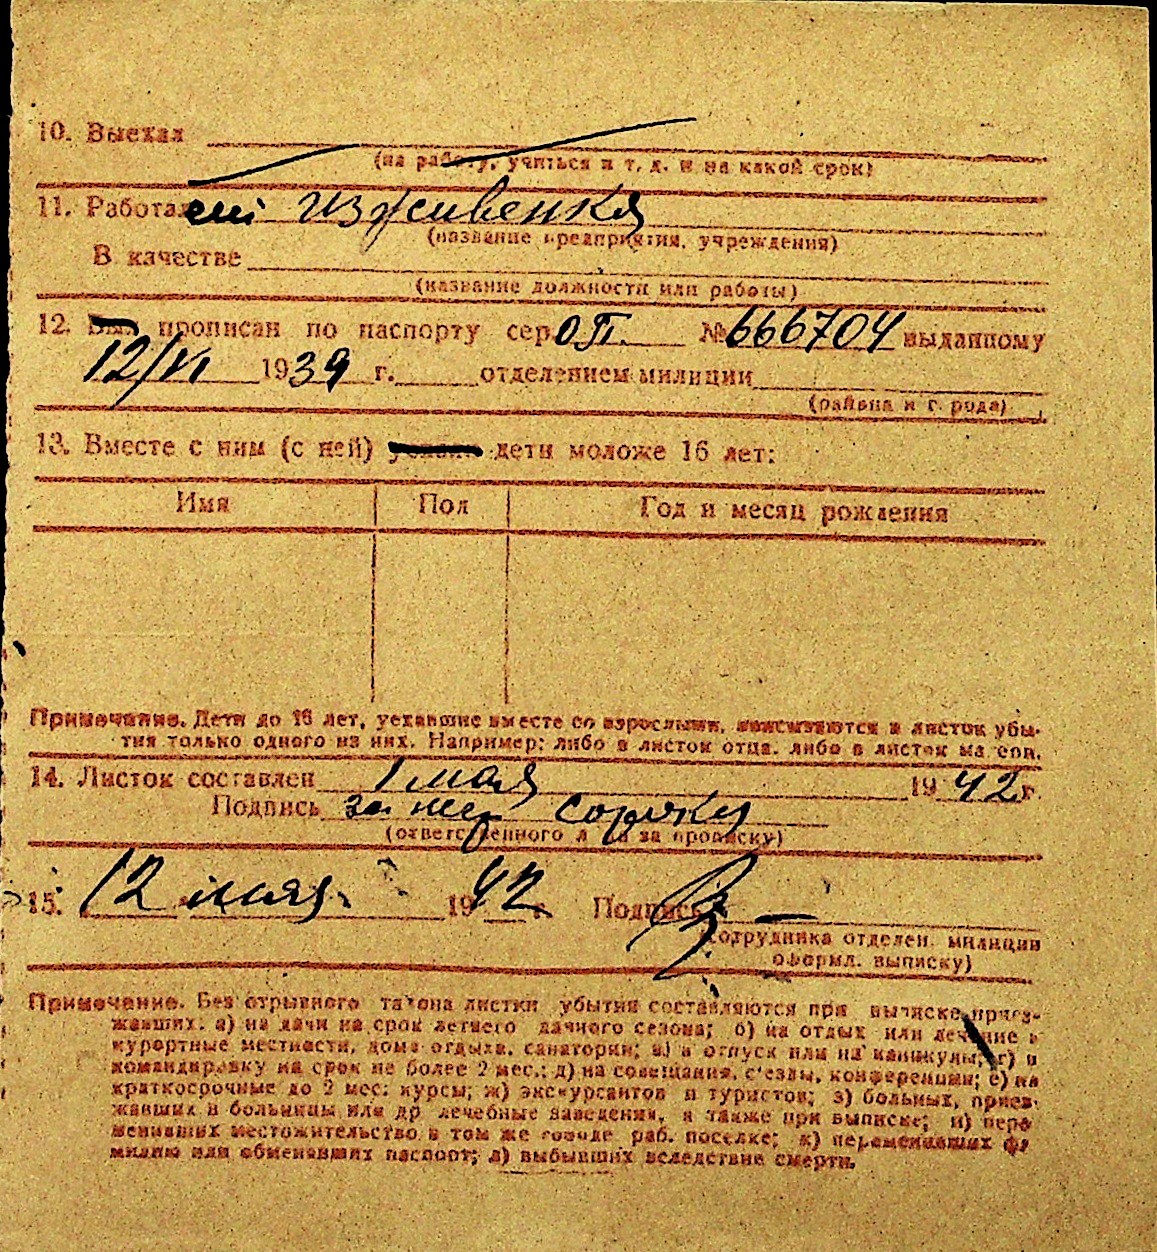 10. Выехал
(на работу, учиться и т. д. и на какой срок)
11. Работал иждивенка
(название предприятия, учреждения)
В качестве
(название должности или работы)
12. Был прописан по паспорту сер. ОП. № 666704 выданному
12/VI 1939 г. отделением милиции
(района и города)
13. Вместе с ним (с ней) дети моложе 16 лет:
Имя Пол Год и месяц рождения
Примечание. Дети до 16 лет, уехавшие вместе со взрослыми, вписываются в листок убы-
тия только одного из них. Например: либо в листок отца, либо в листок матери.
14. Листок составлен 1 мая 1942 г.
Подпись
(ответственного лица за прописку)
15. 12 мая 1942 г. Подпись
(сотрудника отделен. милиции
оформл. выписку)
Примечание. Без отрывного талона листки убытия составляются при выписке приез-
жавших: а) на дачи на срок летнего дачного сезона; б) на отдых или лечение в
курортные местности, дома отдыха, санатории; в) в отпуск или на каникулы; г) в
командировку на срок не более 2 мес.; д) на совещания, с'езды, конференции; е) на
краткосрочные до 2 мес. курсы; ж) экскурсантов и туристов; з) больных, приез-
жавших в больницы или др лечебные заведения, а также при выписке; и) пере
менивших местожительство в том же городе, раб. поселке; к) переменивших фа
милию или обменявших паспорт; л) выбывших вследствие смерти.